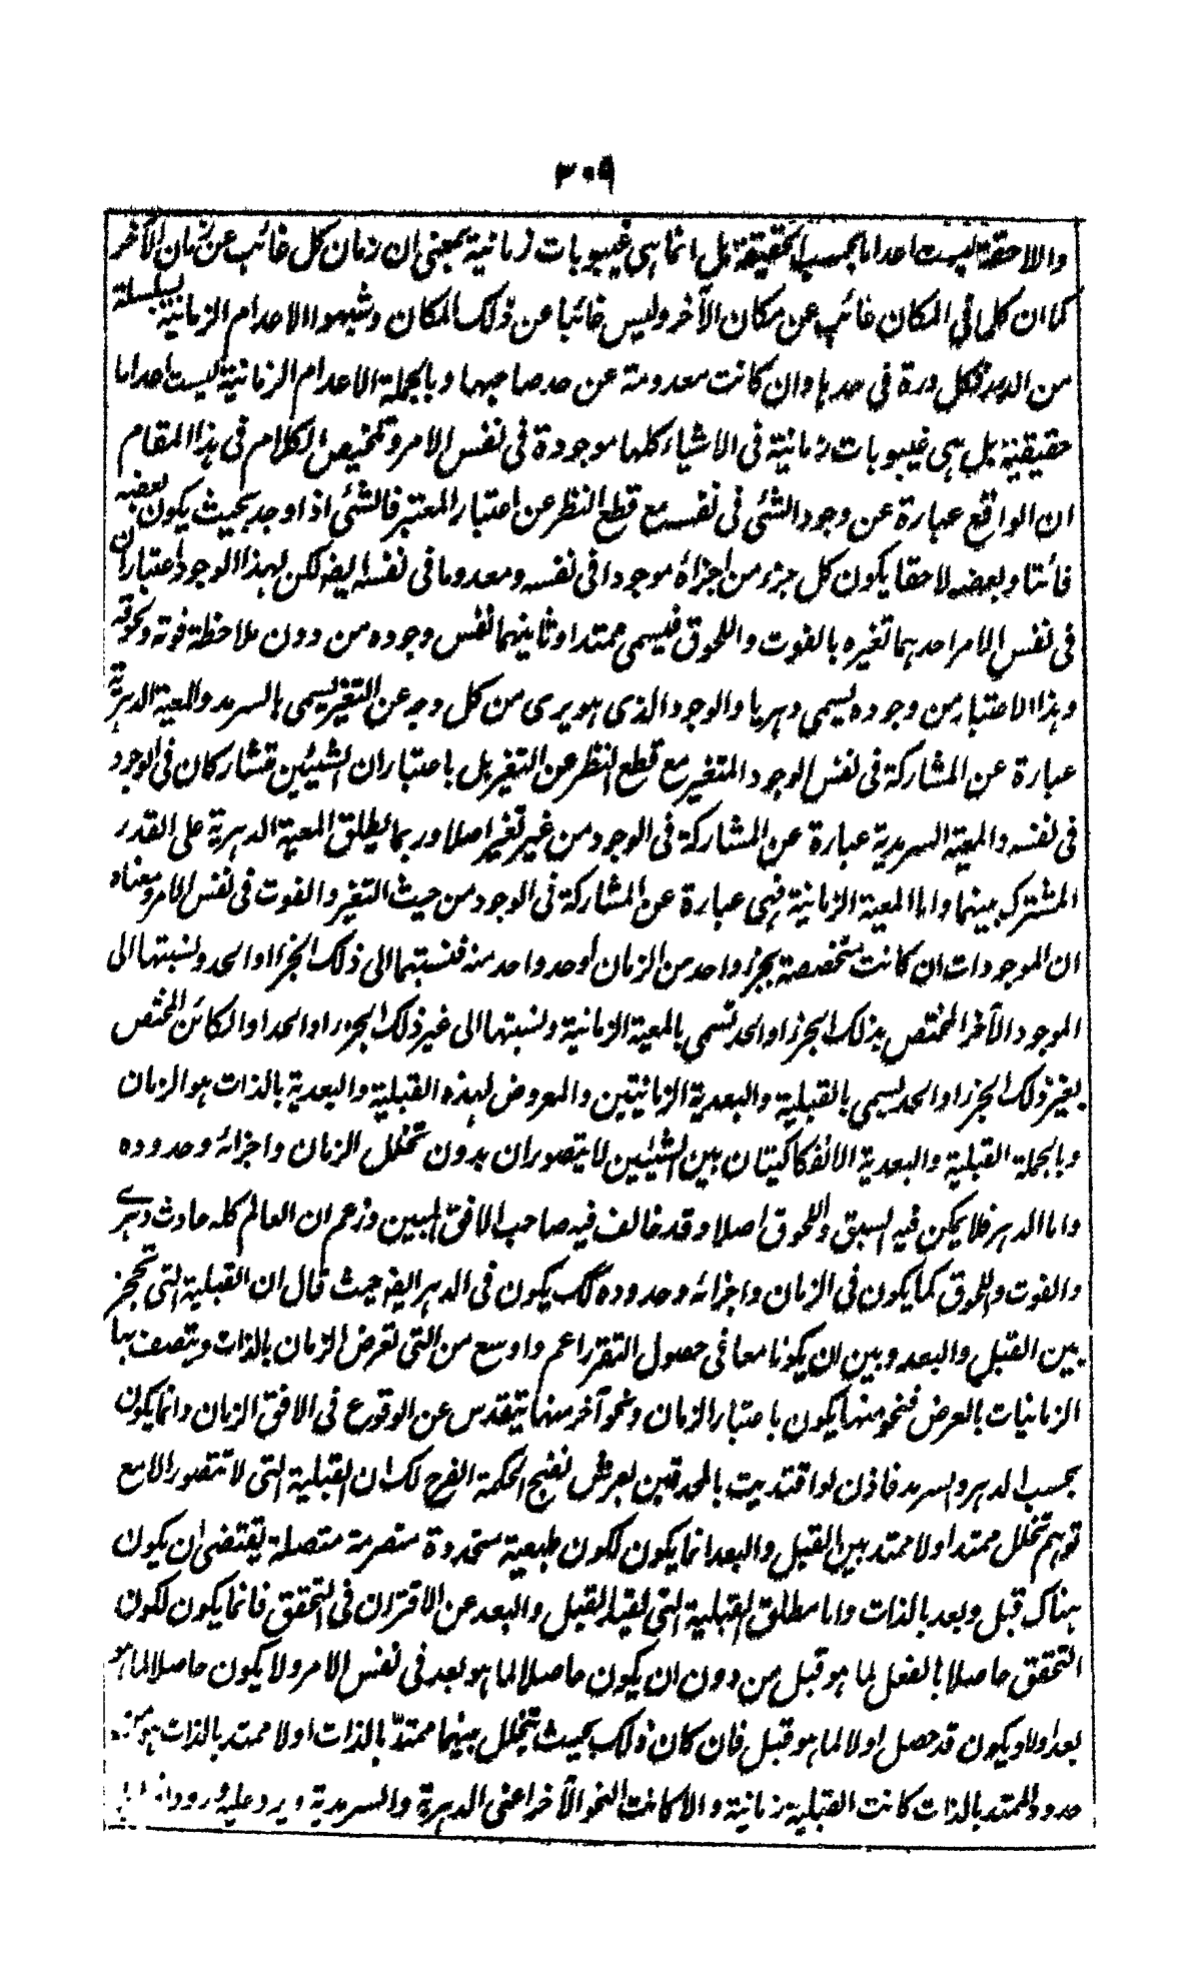 ٣٠٩
واللاحقة ليست اعداما بحسب الحقيقة بل انما هي غيبوبات زمانية بمعنى ان زمان كل غائب عن زمان الآخر
كما ان كلما في المكان غائب عن مكان الآخر وليس غائبا عن ذلك المكان وشبهوا الاعدام الزمانية بسلسلة
من الدر فكل درة في حدها وان كانت معدومة عن حد صاحبها وبالجملة الاعدام الزمانية ليست اعداما
حقيقية بل هي غيبوبات زمانية في الاشياء كلها موجودة في نفس الامر وتلخيص الكلام في هذا المقام
ان الواقع عبارة عن وجود الشئ في نفسه مع قطع النظر عن اعتبار المعتبر فالشئ اذا وجد بحيث يكون بعضه
فائتا وبعضه لاحقا يكون كل جزء من اجزائه موجودا في نفسه ومعدوما في نفسه ايضا لكن لهذا الوجود اعتباران
في نفس الامر احدهما تغيره بالفوت واللحوق فيسمى ممتدا وثانيهما نفس وجوده من دون ملاحظة فوته ولحوقه
وهذا الاعتبار من وجوده يسمى دهريا والوجود الذي هو برى من كل وجه عن التغير يسمى بالسرمد والمعية الدهرية
عبارة عن المشاركة في نفس الوجود المتغير مع قطع النظر عن التغير بل باعتبار ان الشيئين تشاركان في الوجود
في نفسه والمعية السرمدية عبارة عن المشاركة في الوجود من غير تغير اصلا وربما يطلق المعية الدهرية على القدر
المشترك بينهما واما المعية الزمانية فهي عبارة عن المشاركة في الوجود من حيث التغير والفوت في نفس الامر ومعناه
ان الموجودات ان كانت متخصصة بجزء واحد من الزمان او حد واحد منه فنسبتها الى ذلك الجزء او الحد ونسبتها الى
الموجود الآخر المختص بذلك الجزء او الحد تسمى بالمعية الزمانية ونسبتها الى غير ذلك الجزء او الحد او الكائن المختص
بغير ذلك الجزء او الحد يسمى بالقبلية والبعدية الزمانيتين والمعروض لهذه القبلية والبعدية بالذات هو الزمان
وبالجملة القبلية والبعدية الانفكاكيتان بين الشيئين لا يتصوران بدون تخلل الزمان واجزائه وحدوده
واما الدهر فلا يمكن فيه السبق واللحوق اصلا وقد خالف فيه صاحب الافق المبين وزعم ان العالم كله حادث دهرى
والفوت واللحوق كما يكون في الزمان واجزائه وحدوده كك يكون في الدهر ايضا حيث قال ان القبلية التى تحجز
بين القبل والبعد وبين ان يكونا معا في حصول التقرر اعم واوسع من التى تعرض الزمان بالذات ويتصف بها
الزمانيات بالعرض فنحو منها يكون باعتبار الزمان ونحو آخر منها يتقدس عن الوقوع في الافق الزمان وانما يكون
بحسب الدهر والسرمد فاذن لو اقتديت بالمحدقين بعرش نضج الحكمة اتضح لك ان القبلية التى لا تتصور الا مع
توهم تخلل ممتد او لا ممتد بين القبل والبعد انما يكون لكون طبيعة متجددة متصرمة متصلة يقتضى ان يكون
هناك قبل وبعد بالذات واما مطلق القبلية التى لقبل القبل والبعد عن الاقتران في التحقق فانما يكون لكون
التحقق حاصلا بالفعل لما هو قبل من دون ان يكون حاصلا لما هو بعد في نفس الامر ولا يكون حاصلا لما هو
بعد اولا ويكون قد حصل اولا لما هو قبل فان كان ذلك بحيث يتخلل بينهما ممتد بالذات او لا ممتد بالذات هو من
حدود الممتد بالذات كانت القبلية زمانية والا كانت النحو الآخر اعنى الدهرية والسرمدية ويرد عليه